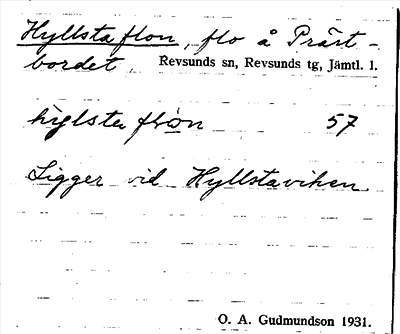 Hyllstaflon, flo å Präst-
bordet. Revsunds sn, Revsunds tg, Jämtl. l.
hylsta flon 57
Ligger vid Hyllstaviken
O. A. Gudmundson 1931.